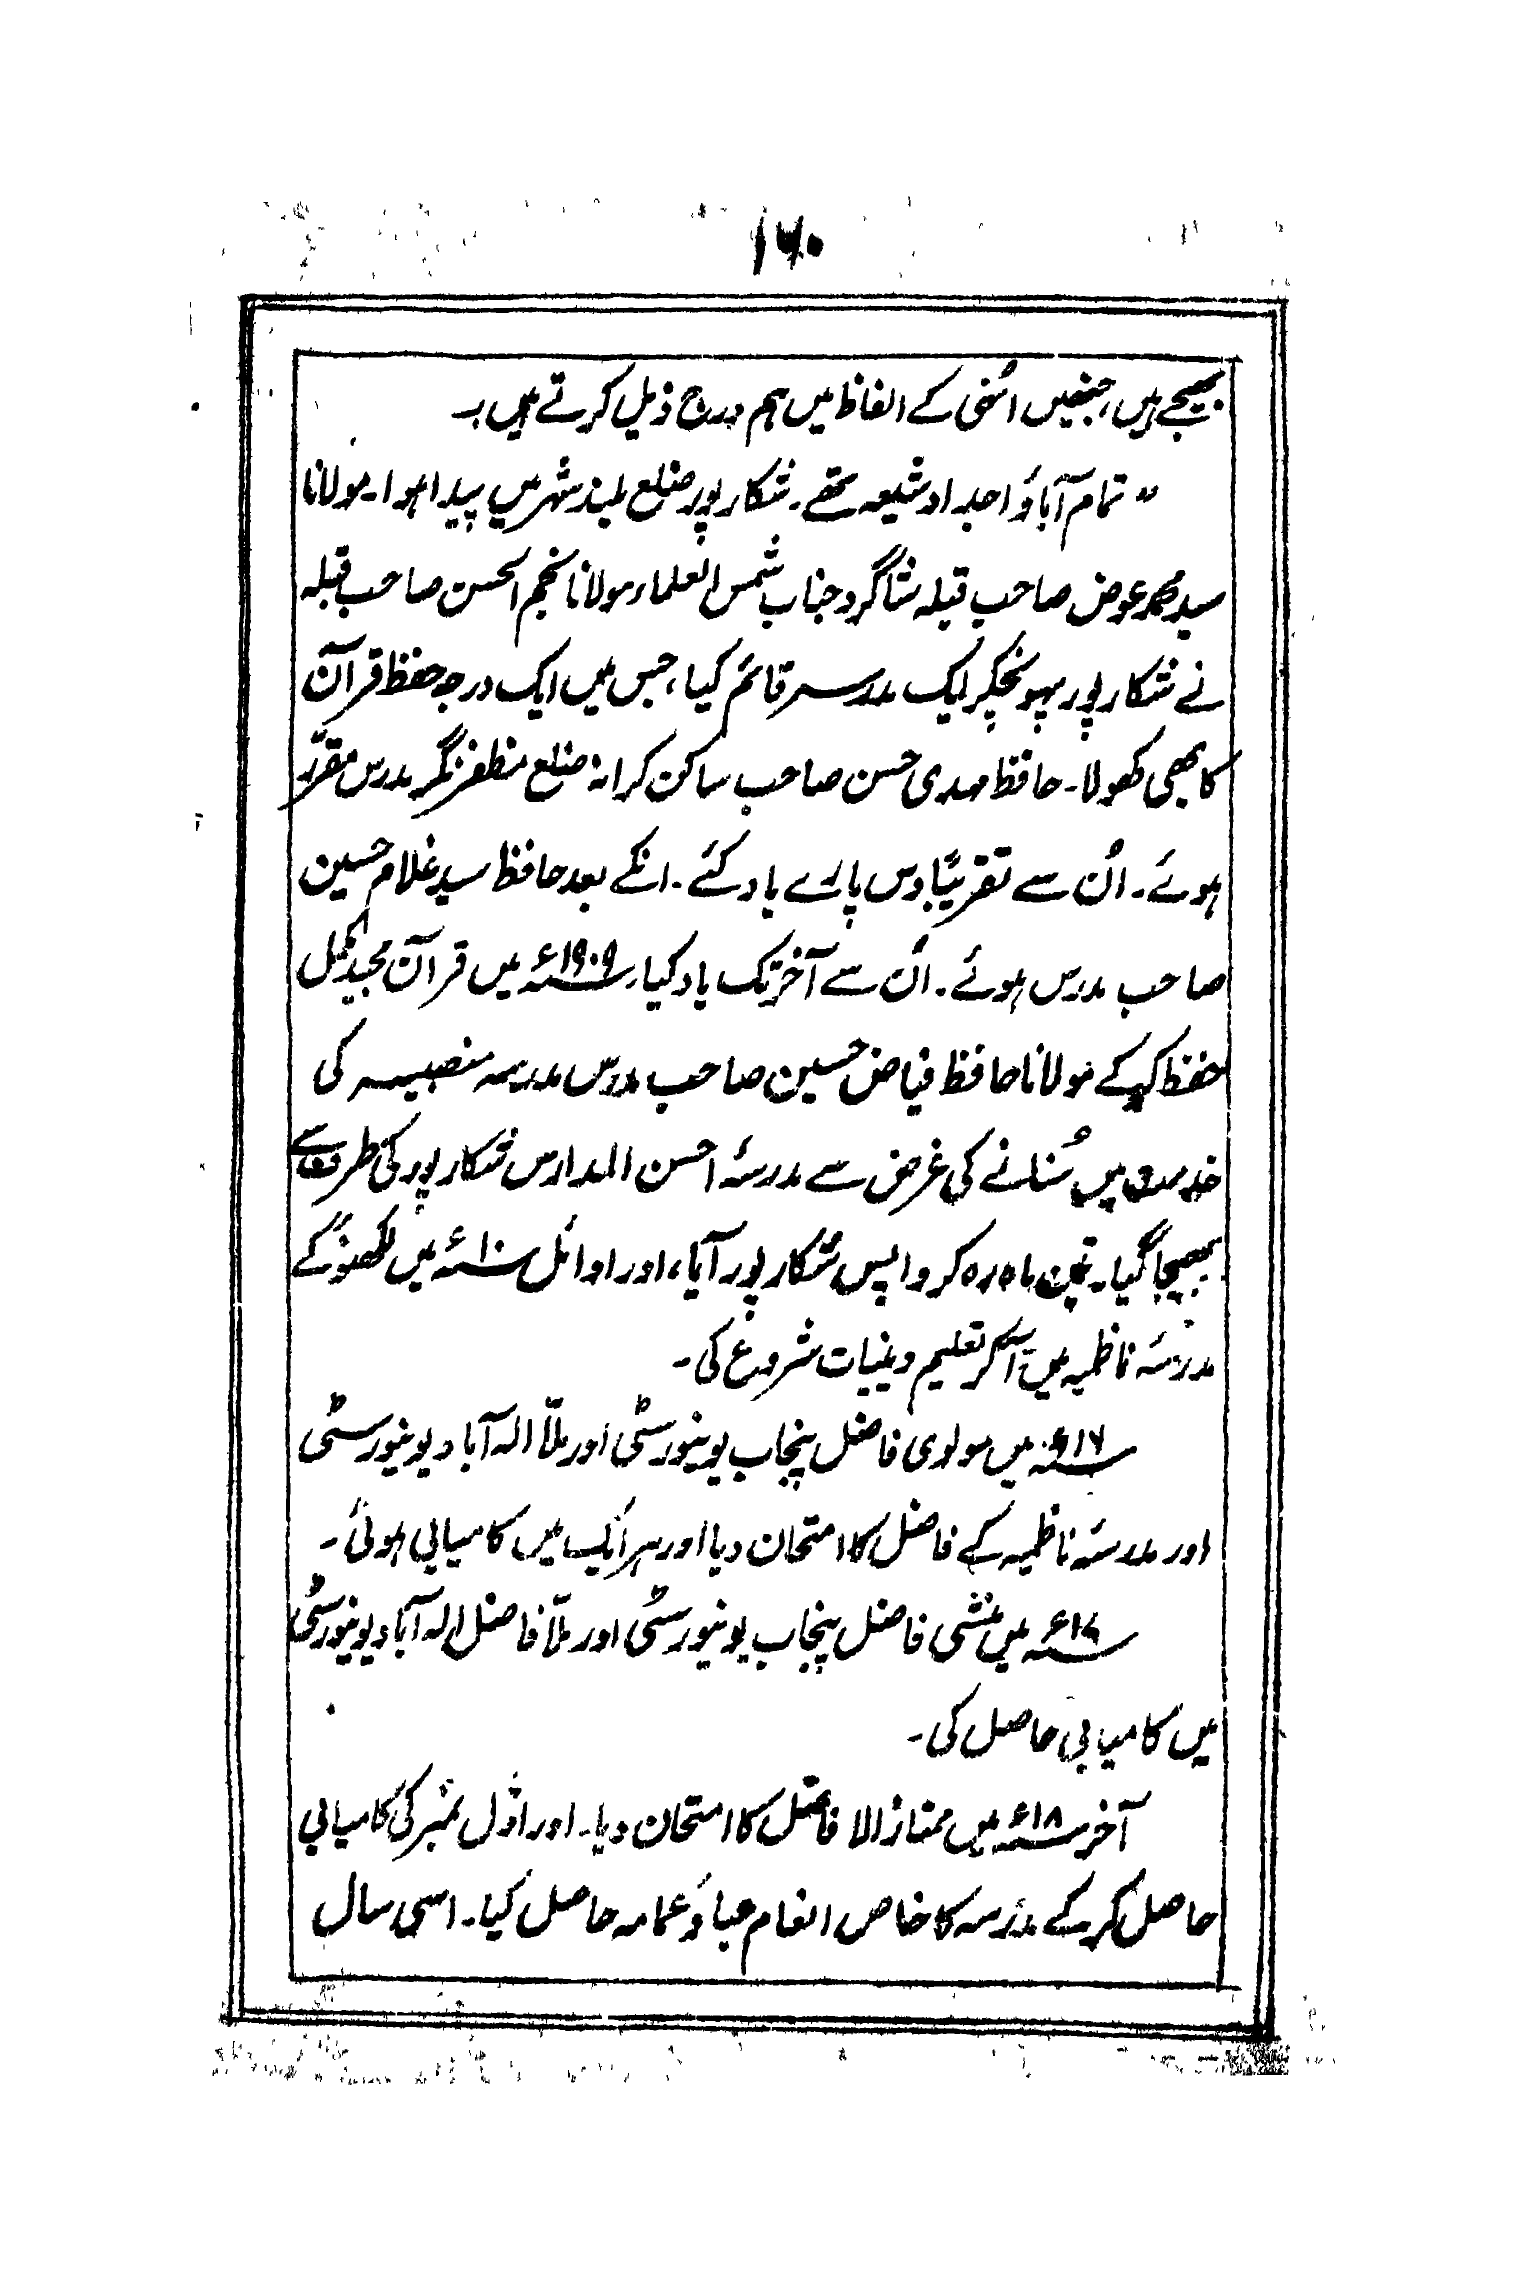 ۱۷۰
بھیجے ہیں، جنھیں اُنہی کے الفاظ میں ہم درج ذیل کرتے ہیں :۔
" تمام آباؤ اجداد شیعہ تھے۔ شکارپور ضلع بلند شہر میں پیدا ہوا۔ مولانا
سید محمد عوض صاحب قبلہ شاگرد جناب شمس العلماء مولانا نجم الحسن صاحب قبلہ
نے شکارپور پہونچکر ایک مدرسہ قائم کیا، جس میں ایک درجہ حفظ قرآن
کا بھی کھولا۔ حافظ مہدی حسن صاحب ساکن کرانہ ضلع مظفر نگر مدرس مقرّر
ہوئے۔ اُن سے تقریبًا دس پارے یاد کئے۔ انکے بعد حافظ سید غلام حسین
صاحب مدرس ہوئے۔ اُن سے آخر تک یاد کیا۔ ۱۹۰۹ء میں قرآن مجید مکمل
حفظ کر کے مولانا حافظ فیاض حسین صاحب مدرّس مدرسہ منصبیہ کی
خدمت میں سُنانے کی غرض سے مدرسۂ احسن المدارس شکارپور کی طرف سے
بھیجا گیا۔ تین ماہ رہ کر واپس شکارپور آیا، اور اوائل ۱۰ء میں لکھنؤ کے
مدرسۂ ناظمیہ میں آکر تعلیم دینیات شروع کی۔
۱۶ء میں مولوی فاضل پنجاب یونیورسٹی اور ملّا الہ آباد یونیورسٹی
اور مدرسۂ ناظمیہ کے فاضل کا امتحان دیا اور ہر ایک میں کامیابی ہوئی۔
۱۷ء میں منشی فاضل پنجاب یونیورسٹی اور ملّا فاضل الہ آباد یونیورسٹی
میں کامیابی حاصل کی۔
آخر ۱۸ء میں ممتاز الافاضل کا امتحان دیا۔ اور اوّل نمبر کی کامیابی
حاصل کر کے مدرسہ کا خاص انعام عبا و عمامہ حاصل کیا۔ اسی سال